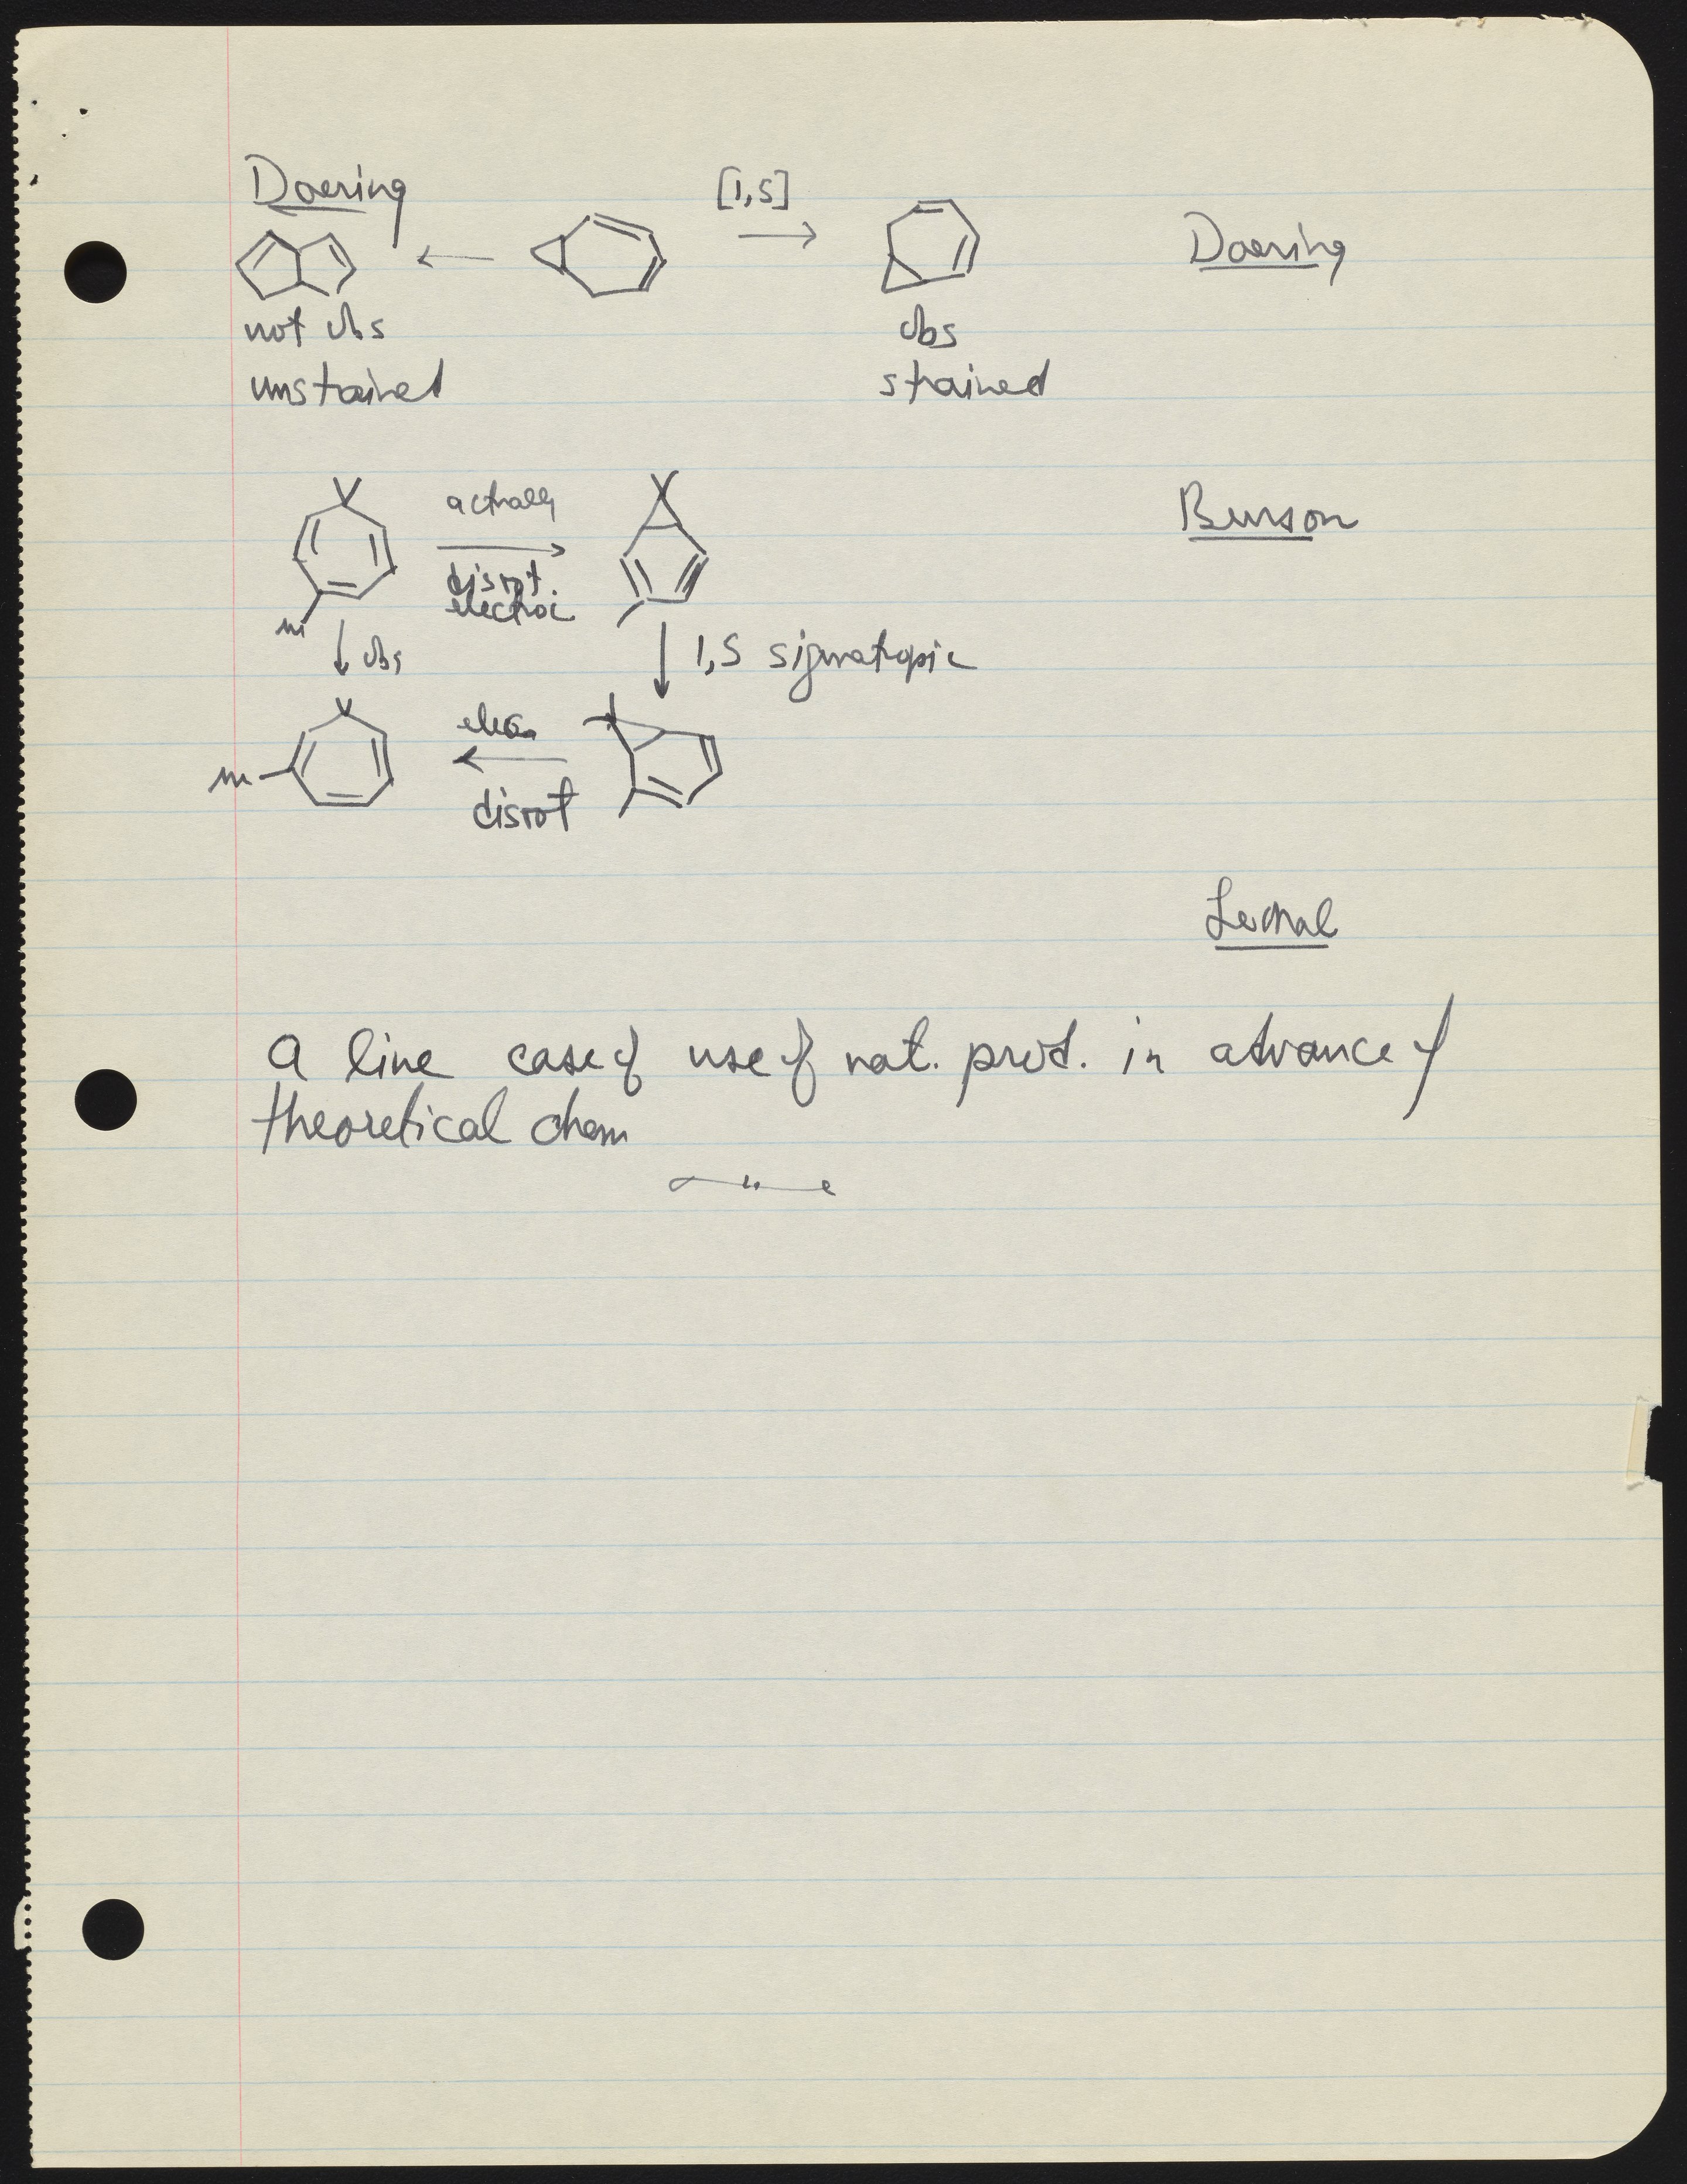 Doering
[1,5]
Doering
not obs
obs
unstrained
strained
actually
Berson
disrot.
electroc
m
obs
1,5 sigmatropic
elec.
m
disrot
Lemal
A line case of use of nat. prod. in advance of
theoretical chem